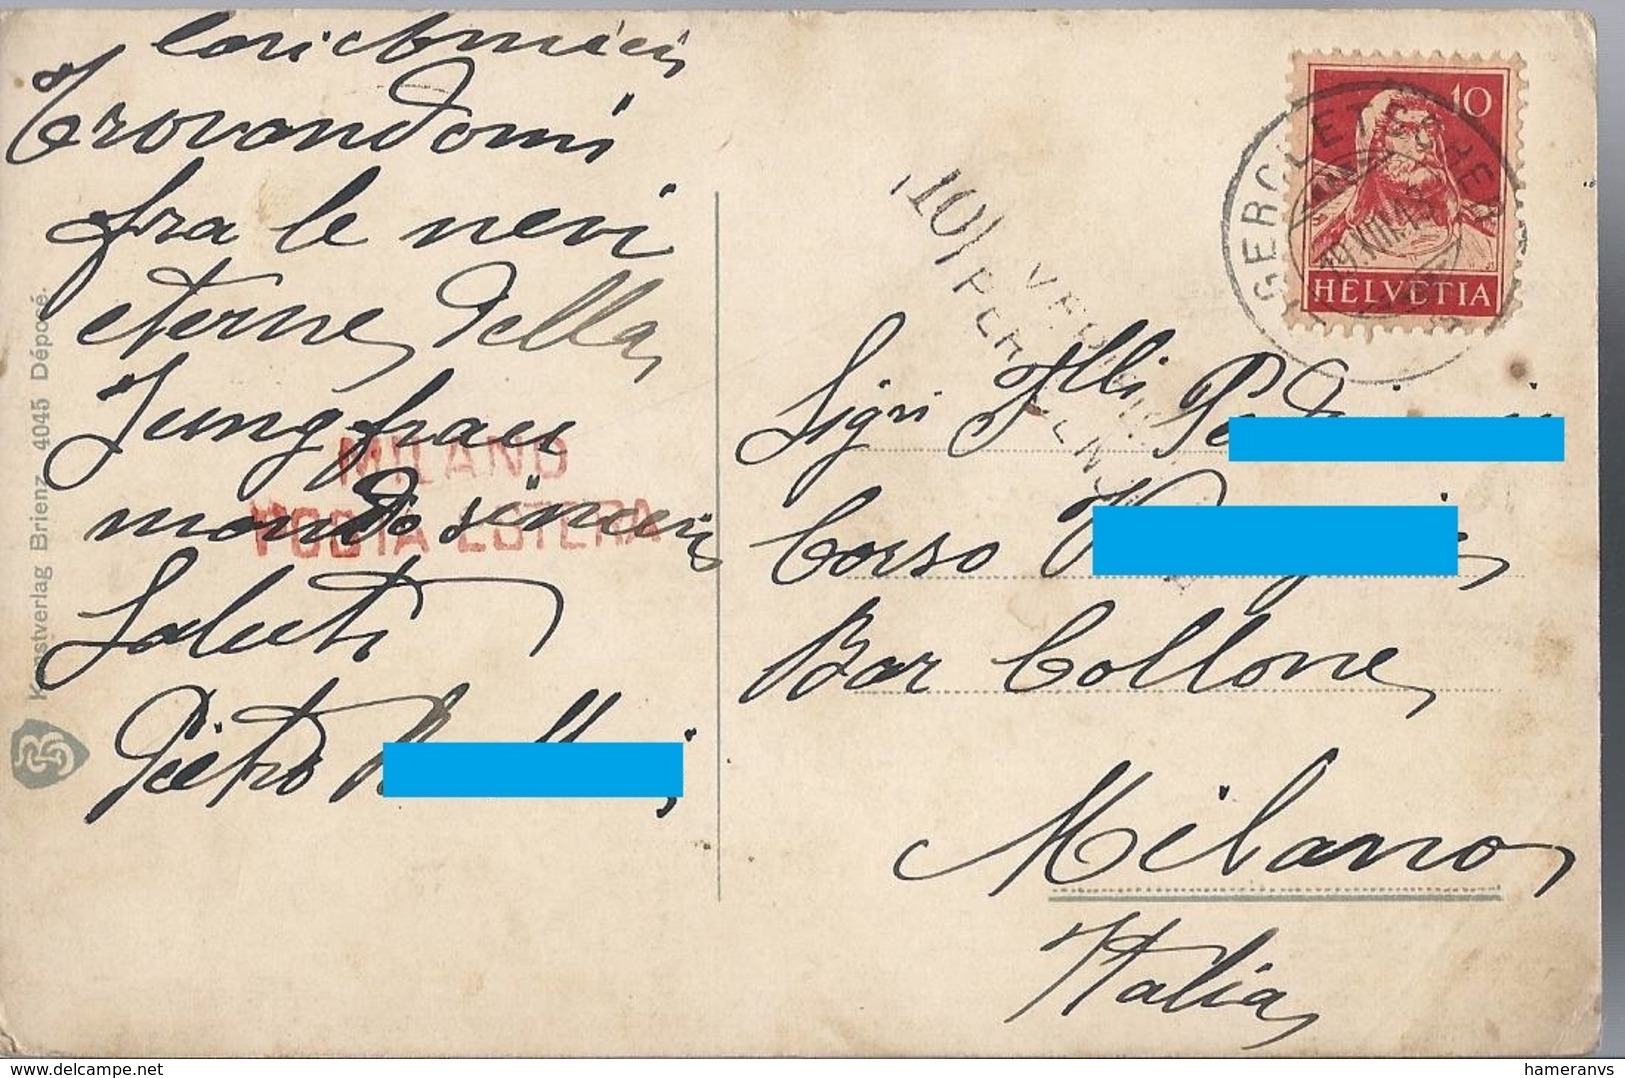 Cari Amici
Trovandomi
fra le nevi
eterne della
Jungfrau
mando sinceri
Saluti
Pietro
Kunstverlag Brienz 4045 Déposé.
MILANO
POSTA ESTERA
10
HELVETIA
(10)
Sigri Flli
Corso
Bar Collone
Milano
Italia
delcampe.net
hameranvs